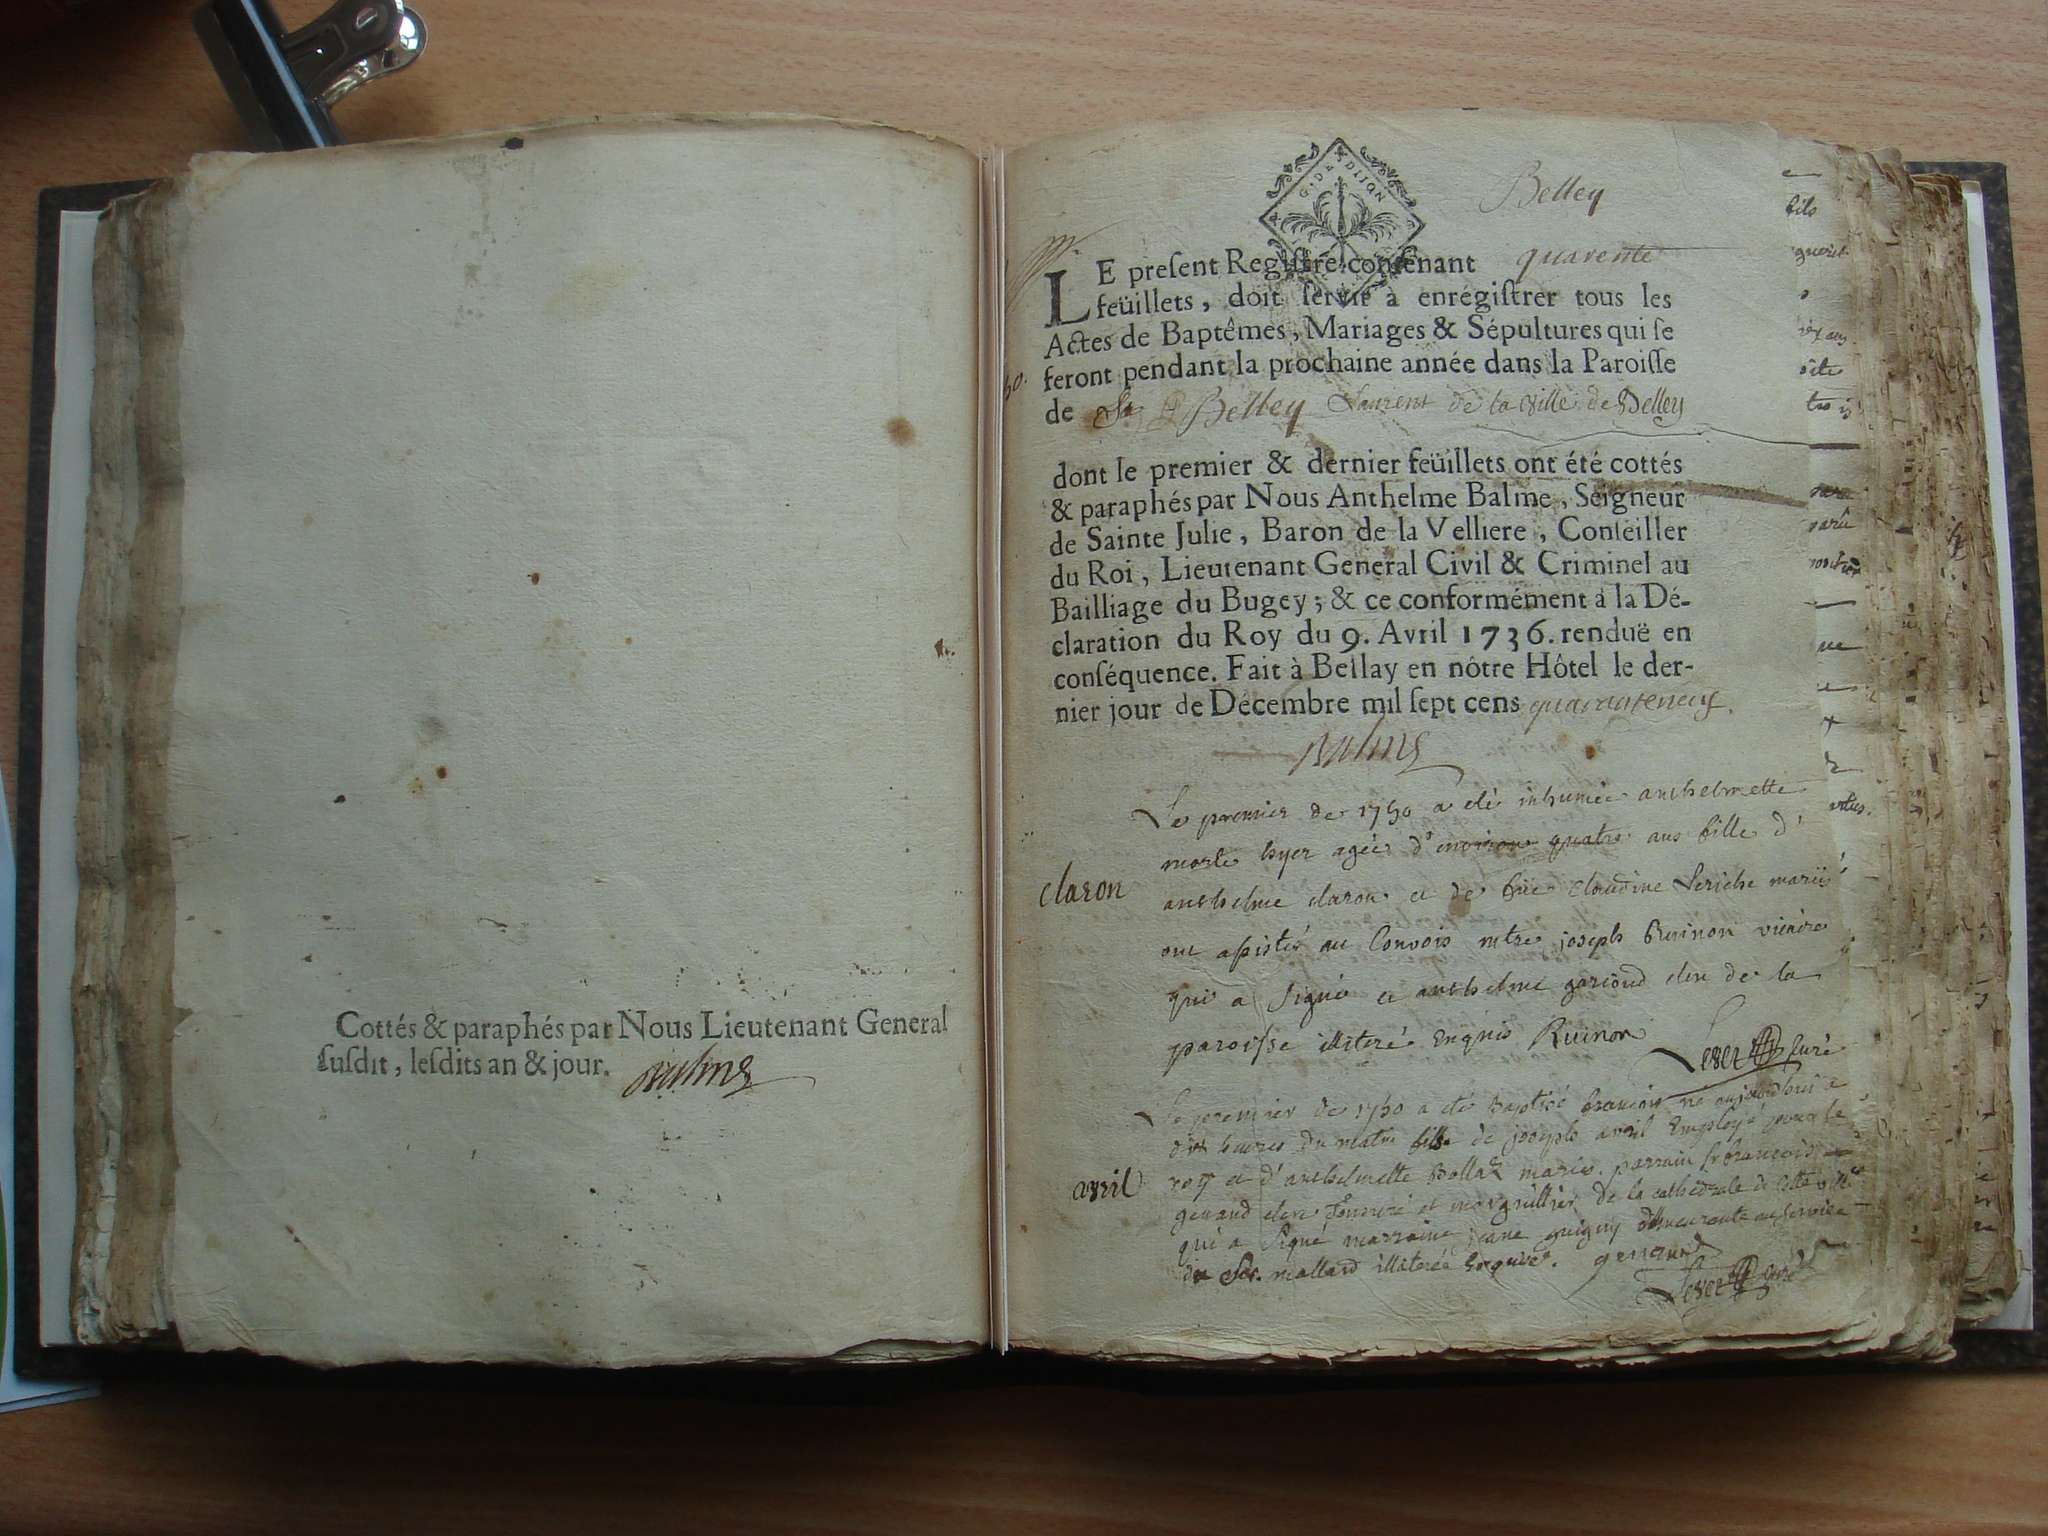 Cottés & paraphés par Nous Lieutenant General
ſuſdit, leſdits an & jour. Balme
G. DE DIJON
Belley
LE preſent Regiſtre contenant quarente
feüillets, doit ſervir à enrégiſtrer tous les
Actes de Baptêmes, Mariages & Sépultures qui ſe
feront pendant la prochaine année dans la Paroiſſe
de St Belley Laurent de la ville de Belley
dont le premier & dernier feüillets ont été cottés
& paraphés par Nous Anthelme Balme, Seigneur
de Sainte Julie, Baron de la Velliere, Conſeiller
du Roi, Lieutenant General Civil & Criminel au
Bailliage du Bugey; & ce conformément à la Dé-
claration du Roy du 9. Avril 1736. renduë en
conſéquence. Fait à Bellay en nôtre Hôtel le der-
nier jour de Décembre mil ſept cens quaranteneuf.
Balme
Le premier de 1750 a été inhumée anthelmette
morte hyer agée d'environ quatre ans fille d'
claron
anthelme claron et de füe claudine Leriche mariés
ont assisté au Convois mtre joseph Ruinon vicaire
qui a signé et anthelme garioud clerc de la
paroisse illiteré Enquis Ruinon
curé
Le premier de 1750 a été Baptisé francois né aujourdhui a
dix heures du matin fils de joseph avril Employé pour le
avril
roy et d'anthelmette Bollat mariés. parrain sr francois
genand clerc Tonsuré et marguillier de la cathédrale de cette ville
qui a signé marraine jeane guigny demeurante au service
du Sr. mallard illiterée Enquise. genand
curé